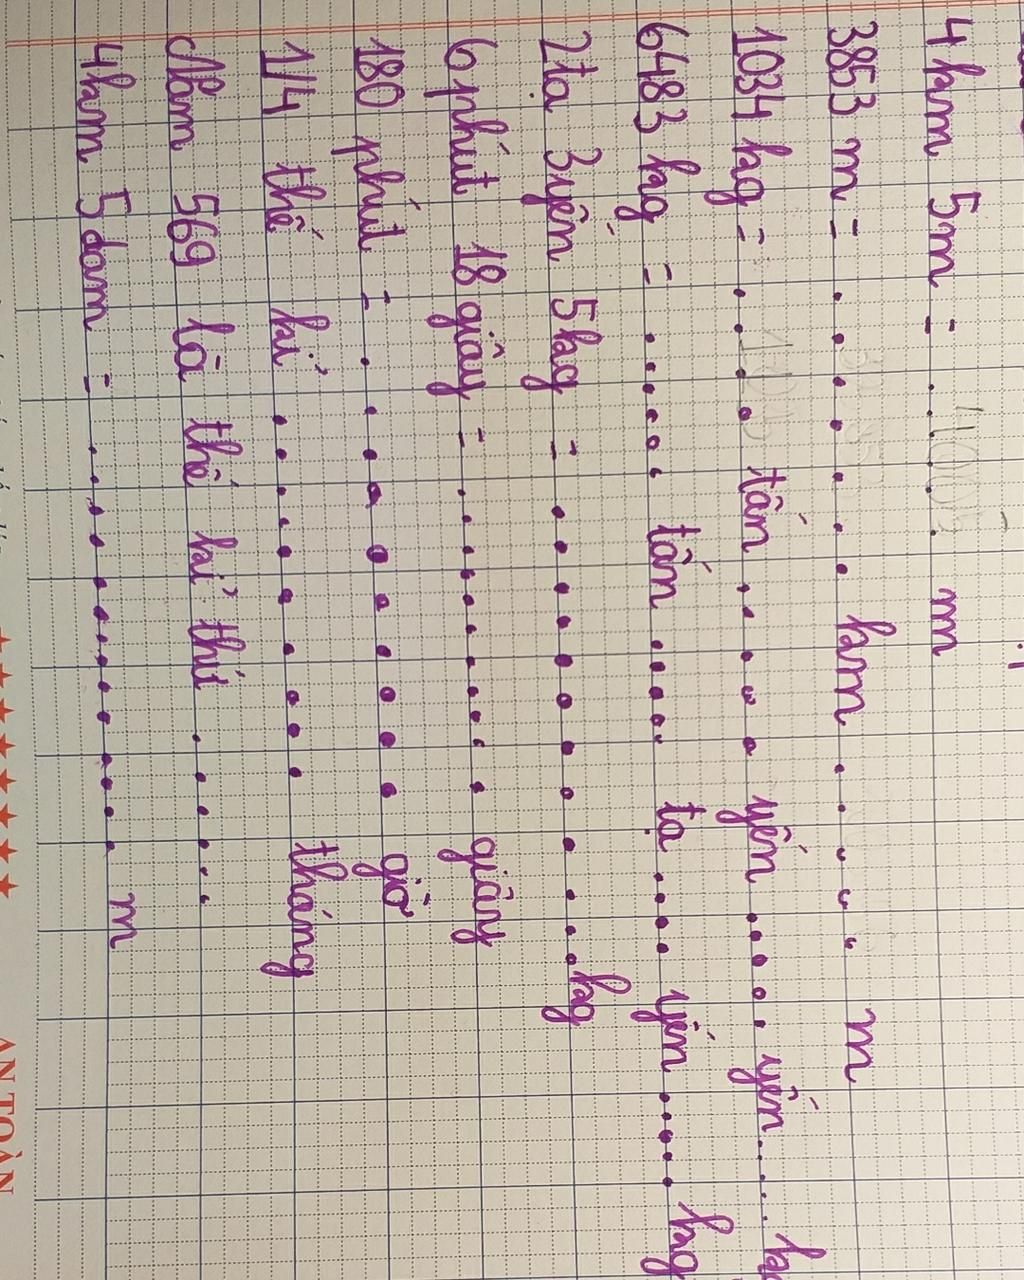 4 km 5m = ........ m
3853 m = ....... km ..... m
1034 kg = .... tấn .... yến .... yến .... k
6483 kg = ..... tấn .... tạ .... yến .... kg
2tạ 3yến 5kg = ............ kg
6 phút 18 giây = .......... giây
180 phút = .......... giờ
1/4 thế kỉ ......... tháng
Năm 569 là thế kỉ thứ .....
4km 5dam = ............ m
AN TOÀN